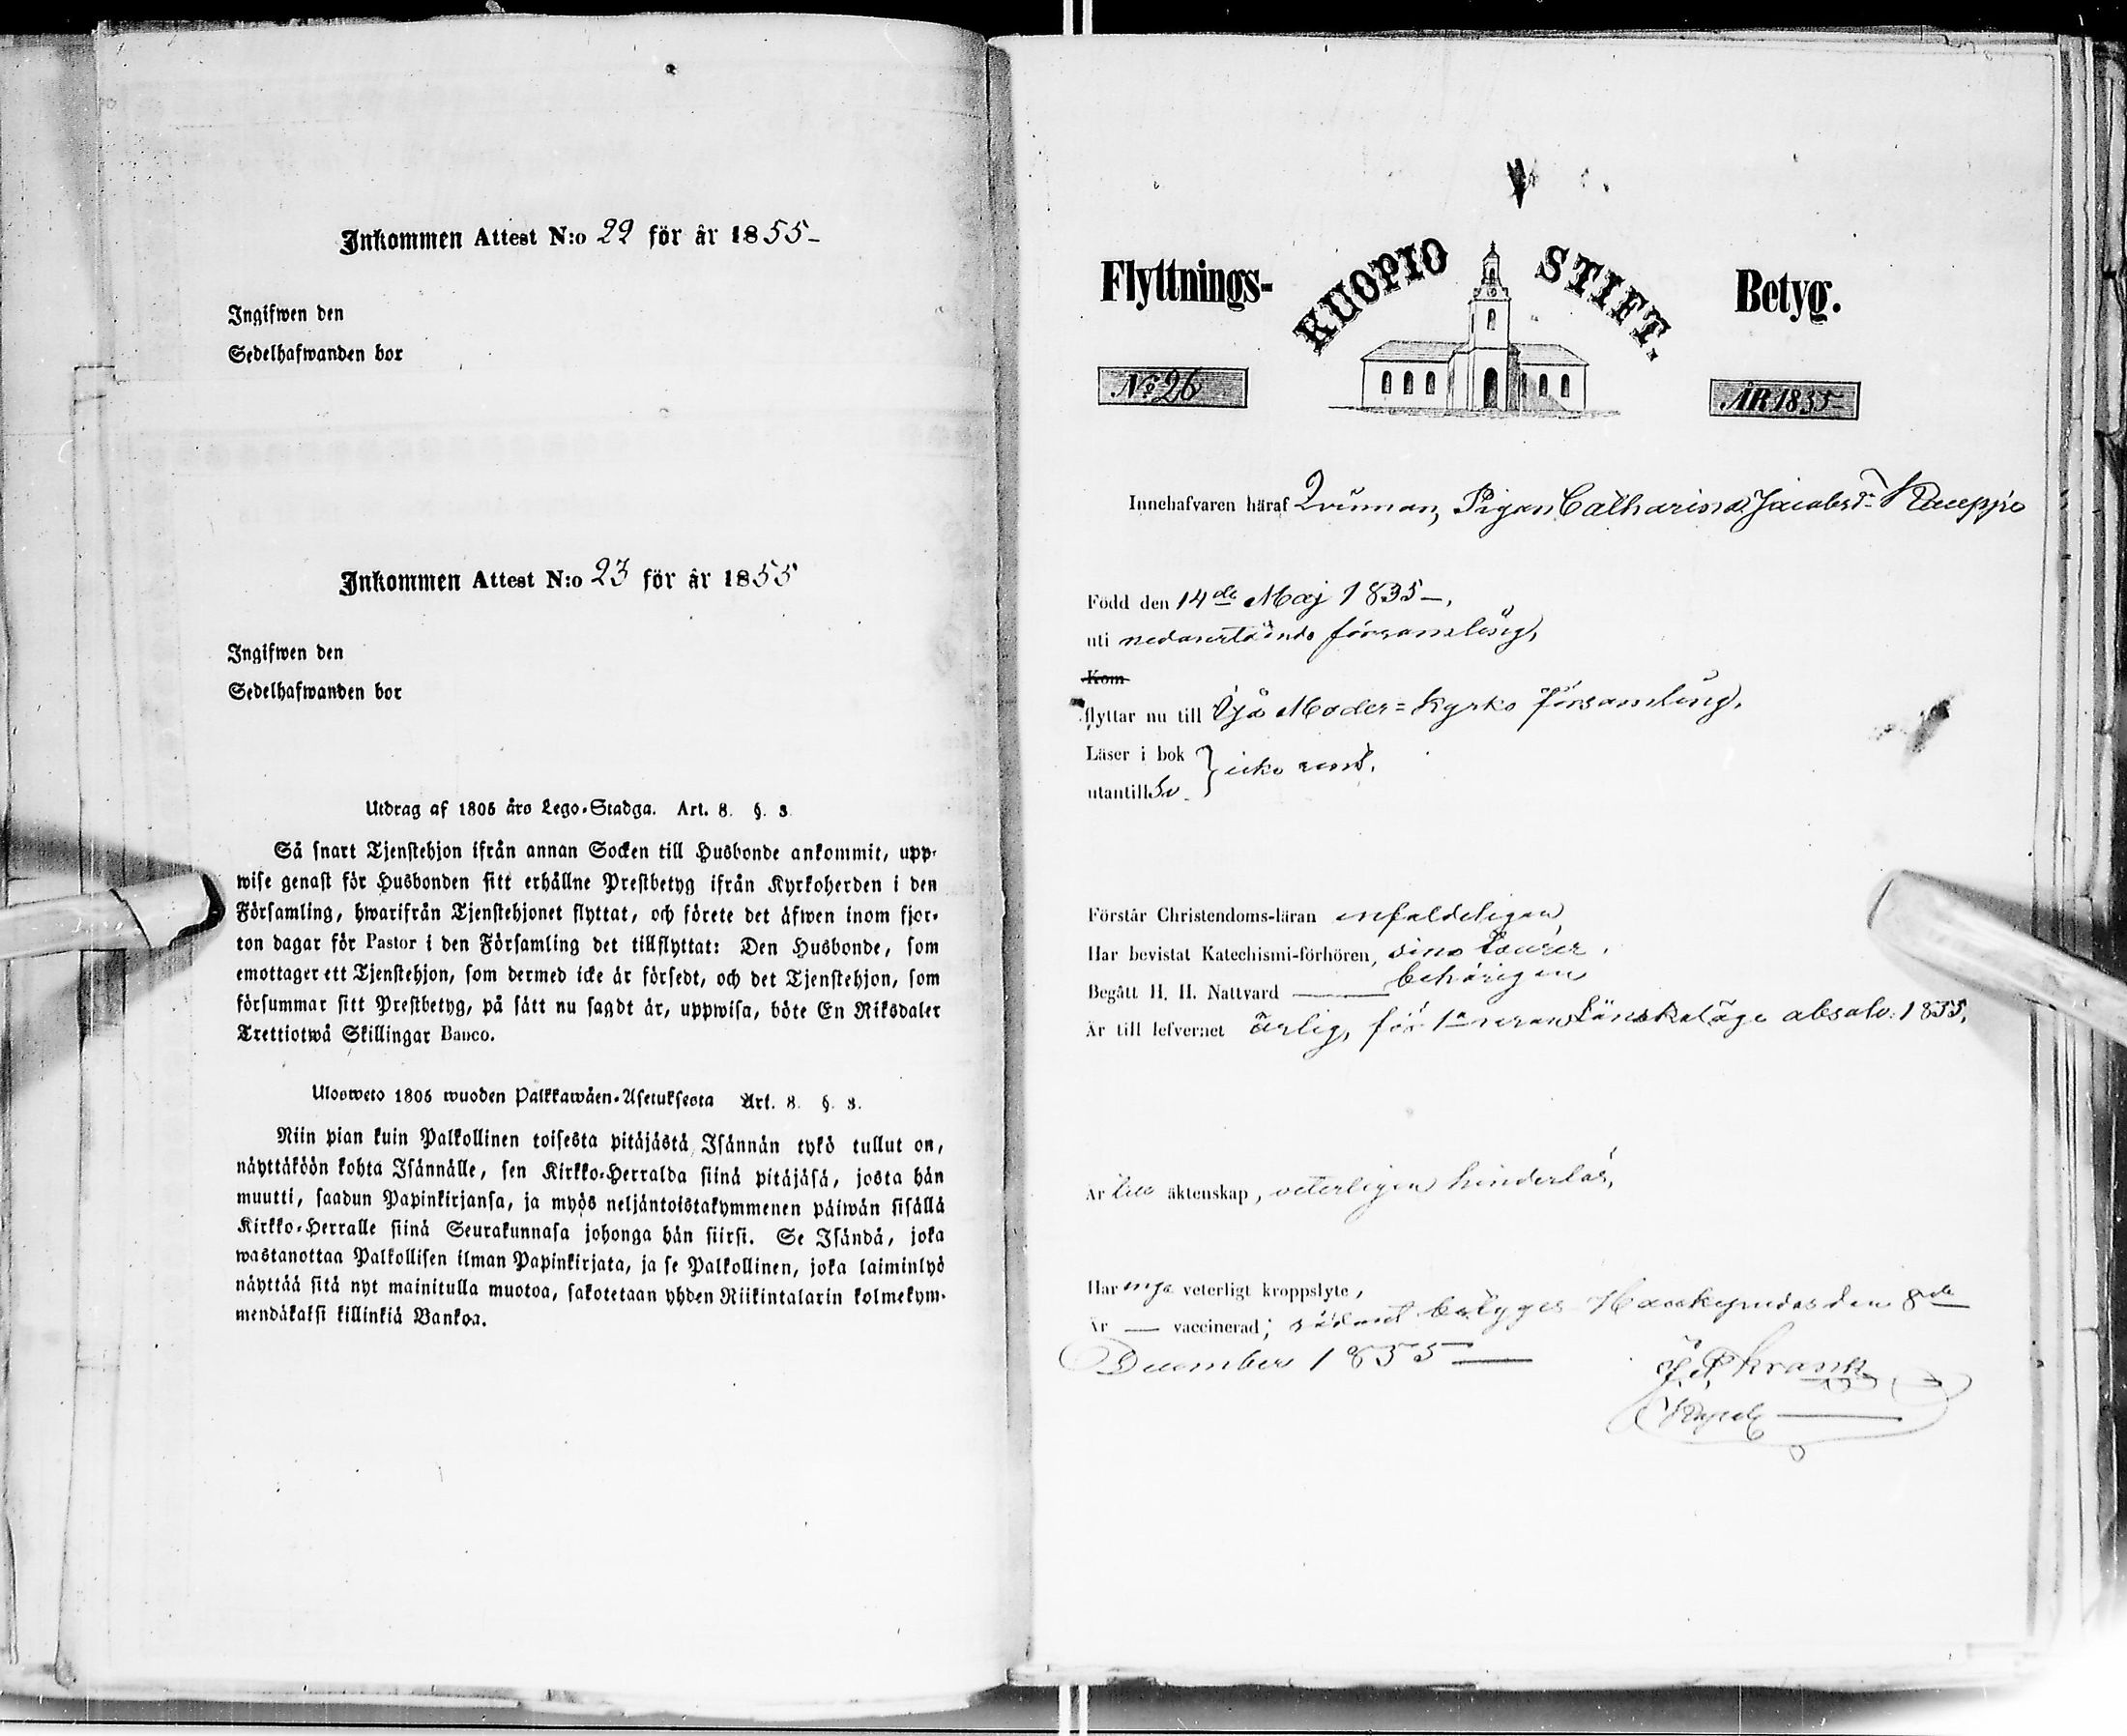 Inkommen Attest N:o 22 för år 1855-
Ingifwen den
Sedelhafwanden bor
Inkommen Attest N:o 23 för år 1855
Ingifwen den
Sedelhafwanden bor
Utdrag af 1805 års Lego-Stadga. Art. 8. §. 3.
Så snart Tjenstehjon ifrån annan Socken till Husbonde ankommit, upp-
wise genast för Husbonden sitt erhållne Prestbetyg ifrån Kyrkoherden i den
Församling, hwarifrån Tjenstehjonet flyttat, och förete det äfwen inom fjor-
ton dagar för Pastor i den Församling det tillflyttat: Den Husbonde, som
emottager ett Tjenstehjon, som dermed icke är försedt, och det Tjenstehjon, som
försummar sitt Prestbetyg, på sätt nu sagdt är, uppwisa, böte En Riksdaler
Trettiotwå Skillingar Banco.
Ulosweto 1805 wuoden Palkkawäen-Asetuksesta Art. 8. §. 3.
Niin pian kuin Palkollinen toisesta pitäjästä Isännän tykö tullut on,
näyttäköön kohta Isännälle, sen Kirkko-Herralda siinä pitäjäsä, josta hän
muutti, saadun Papinkirjansa, ja myös neljäntoistakymmenen päiwän sisällä
Kirkko-Herralle siinä Seurakunnasa johonga hän siirsi. Se Isändä, joka
wastanottaa Palkollisen ilman Papinkirjata, ja se Palkollinen, joka laiminlyö
näyttää sitä nyt mainitulla muotoa, sakotetaan yhden Riikintalarin kolmekym-
mendäkaksi killinkiä Bankoa.
Flyttnings- KUOPIO STIFT. Betyg.
No 26 ÅR 1855
Innehafvaren häraf Qvinnan, Pigan Catharina Jacobsd:r Kauppi
Född den 14de Maj 1835-.
uti nedanstående församling,
Kom
flyttar nu till Ijo Moder=Kyrko församling.
Läser i bok } icke rent.
utantill
Förstår Christendoms-läran enfaldeligen
Har bevistat Katechismi-förhören, sina
Begått H. H. Nattvard — behörigen
Är till lefvernet ärlig, för 1a resan Lönskaläge absolv. 1855.
Är till äktenskap, veterligen hinderlös,
Har inga veterligt kroppslyte,
Är — vaccinerad; sådant betygar Haukipudas den 8de
December 1855 —